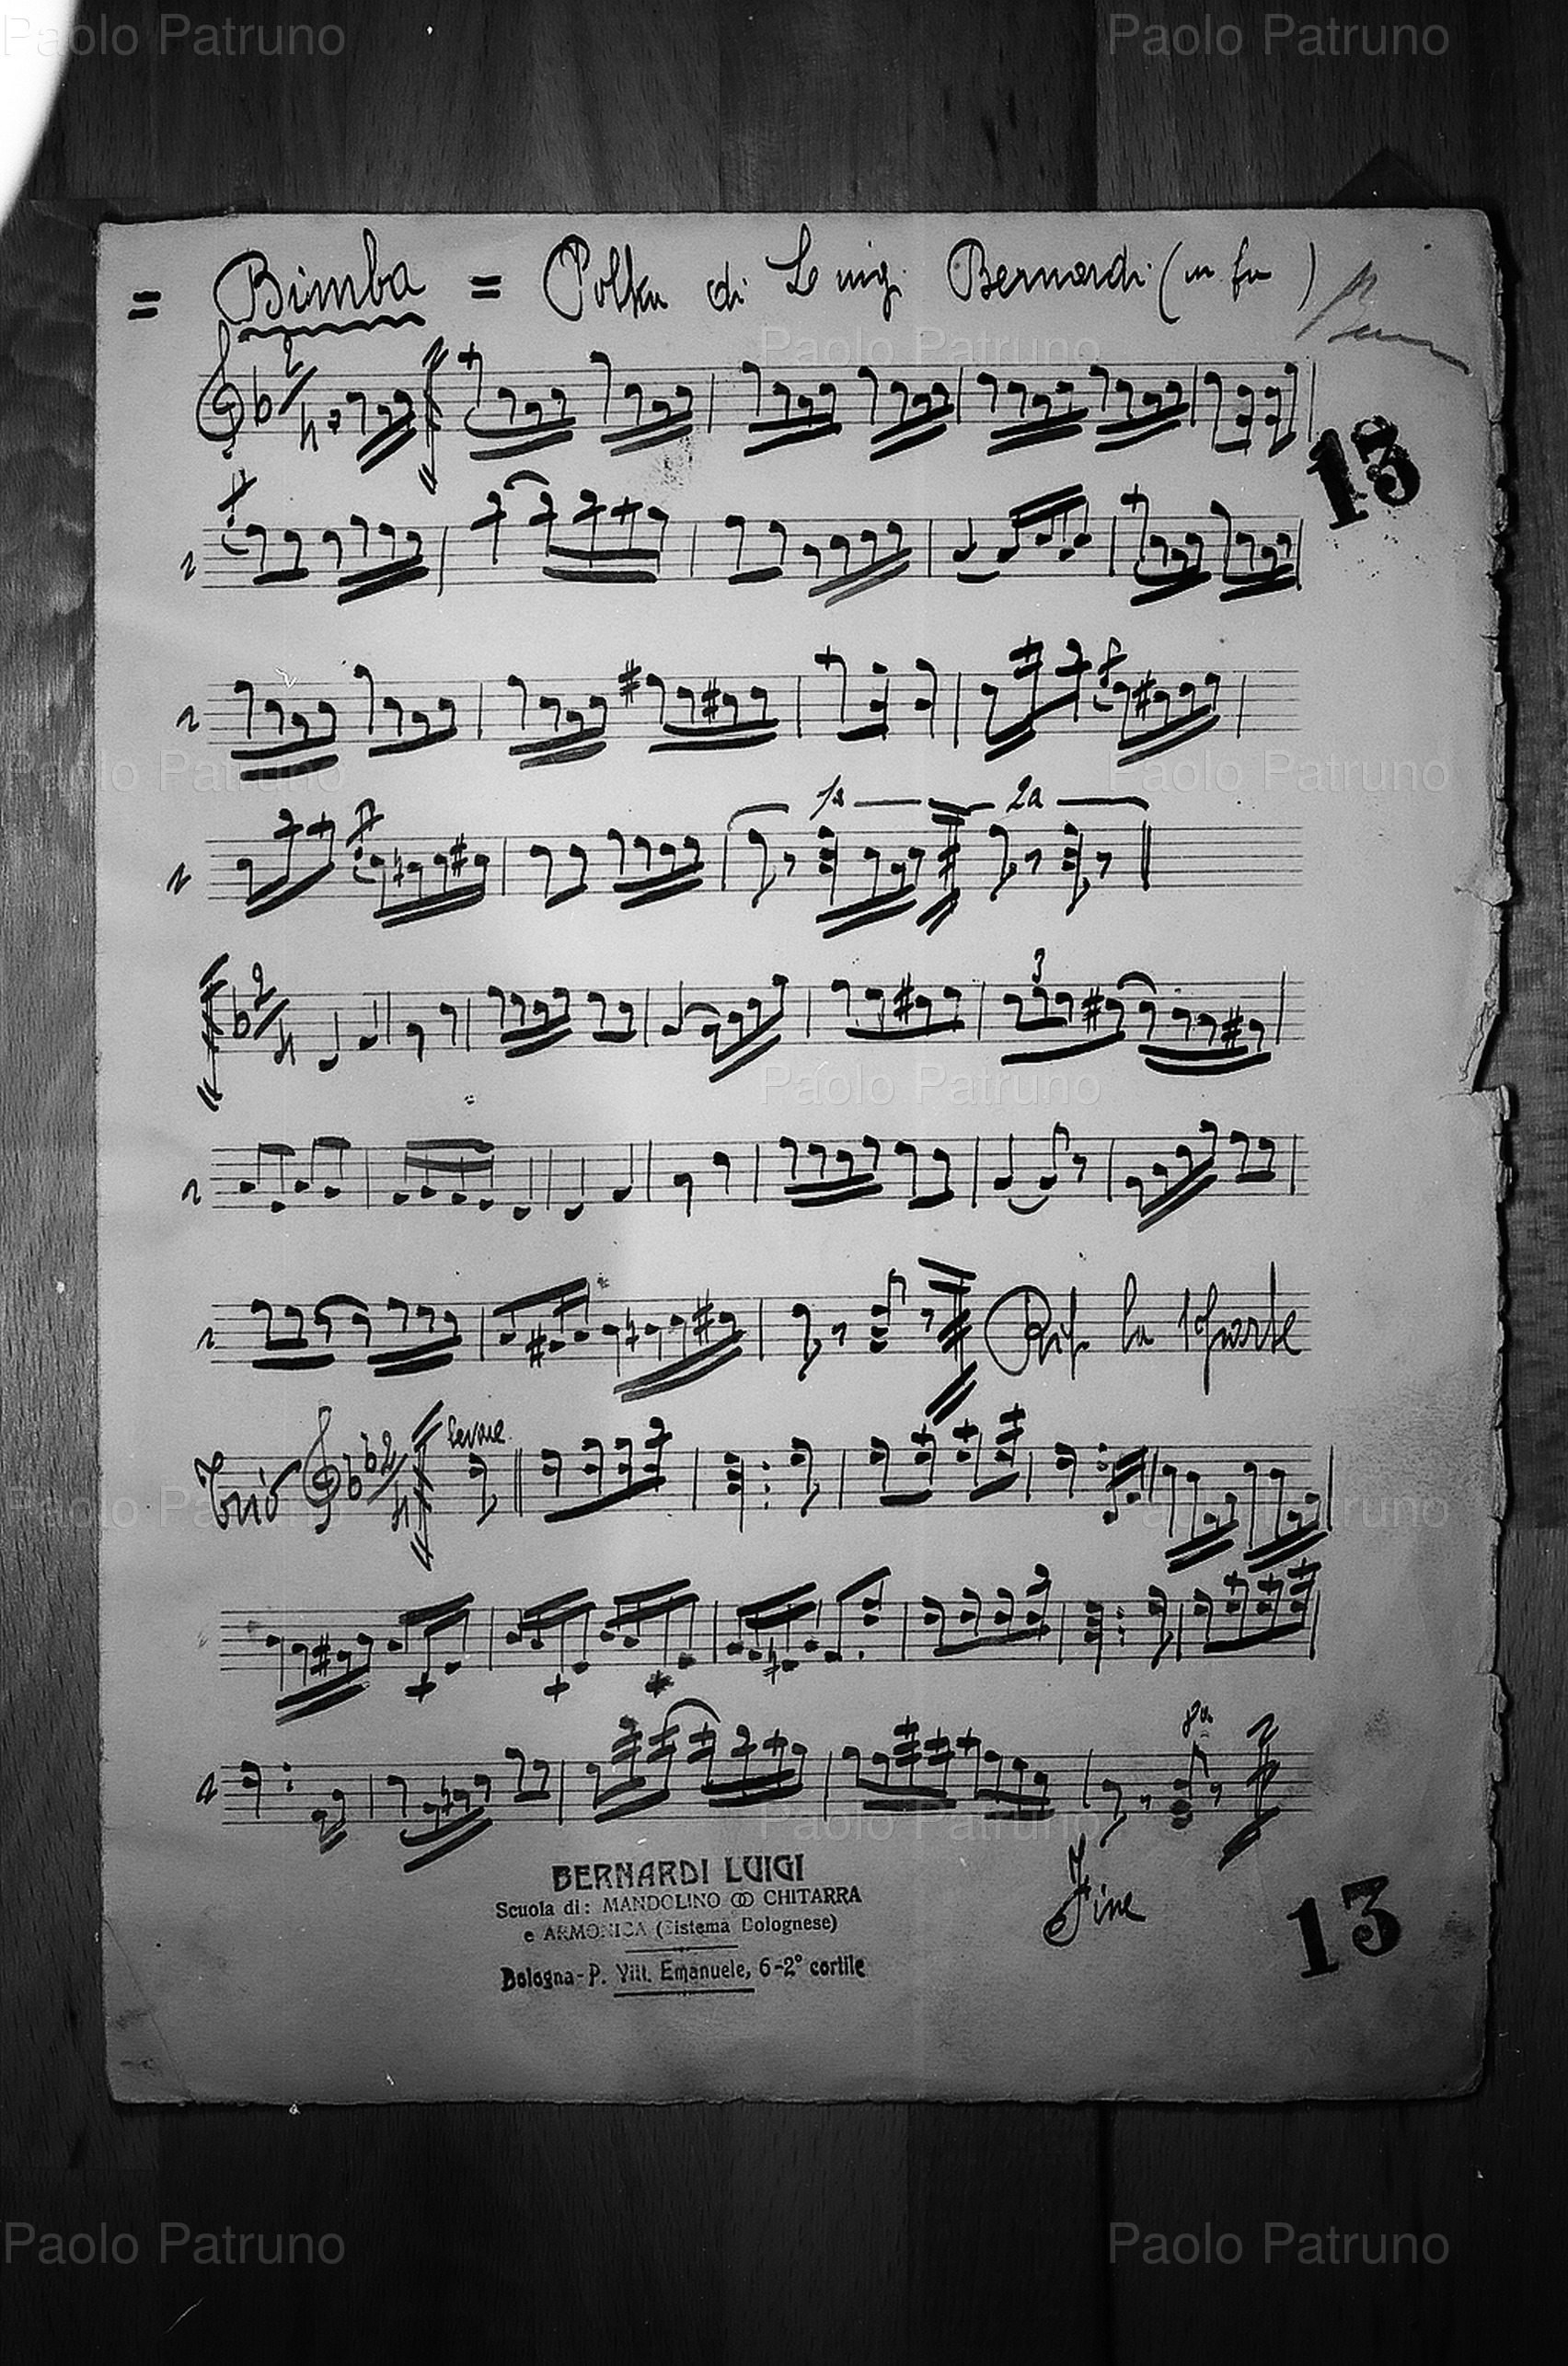 Paolo Patruno Paolo Patruno
= Bimba = Polka di Luigi Bernardi (in fa)
Paolo Patruno
2/4
13
Paolo Patruno Paolo Patruno
1a 2a
2/4
3
Paolo Patruno
Rip. la 1a parte
Trio 2/4
Paolo Patruno Paolo Patruno
8a
Paolo Patruno
Fine
BERNARDI LUIGI
Scuola di: MANDOLINO CHITARRA
e ARMONICA (Sistema Bolognese)
Bologna - P. Vitt. Emanuele, 6-2° cortile
13
Paolo Patruno Paolo Patruno